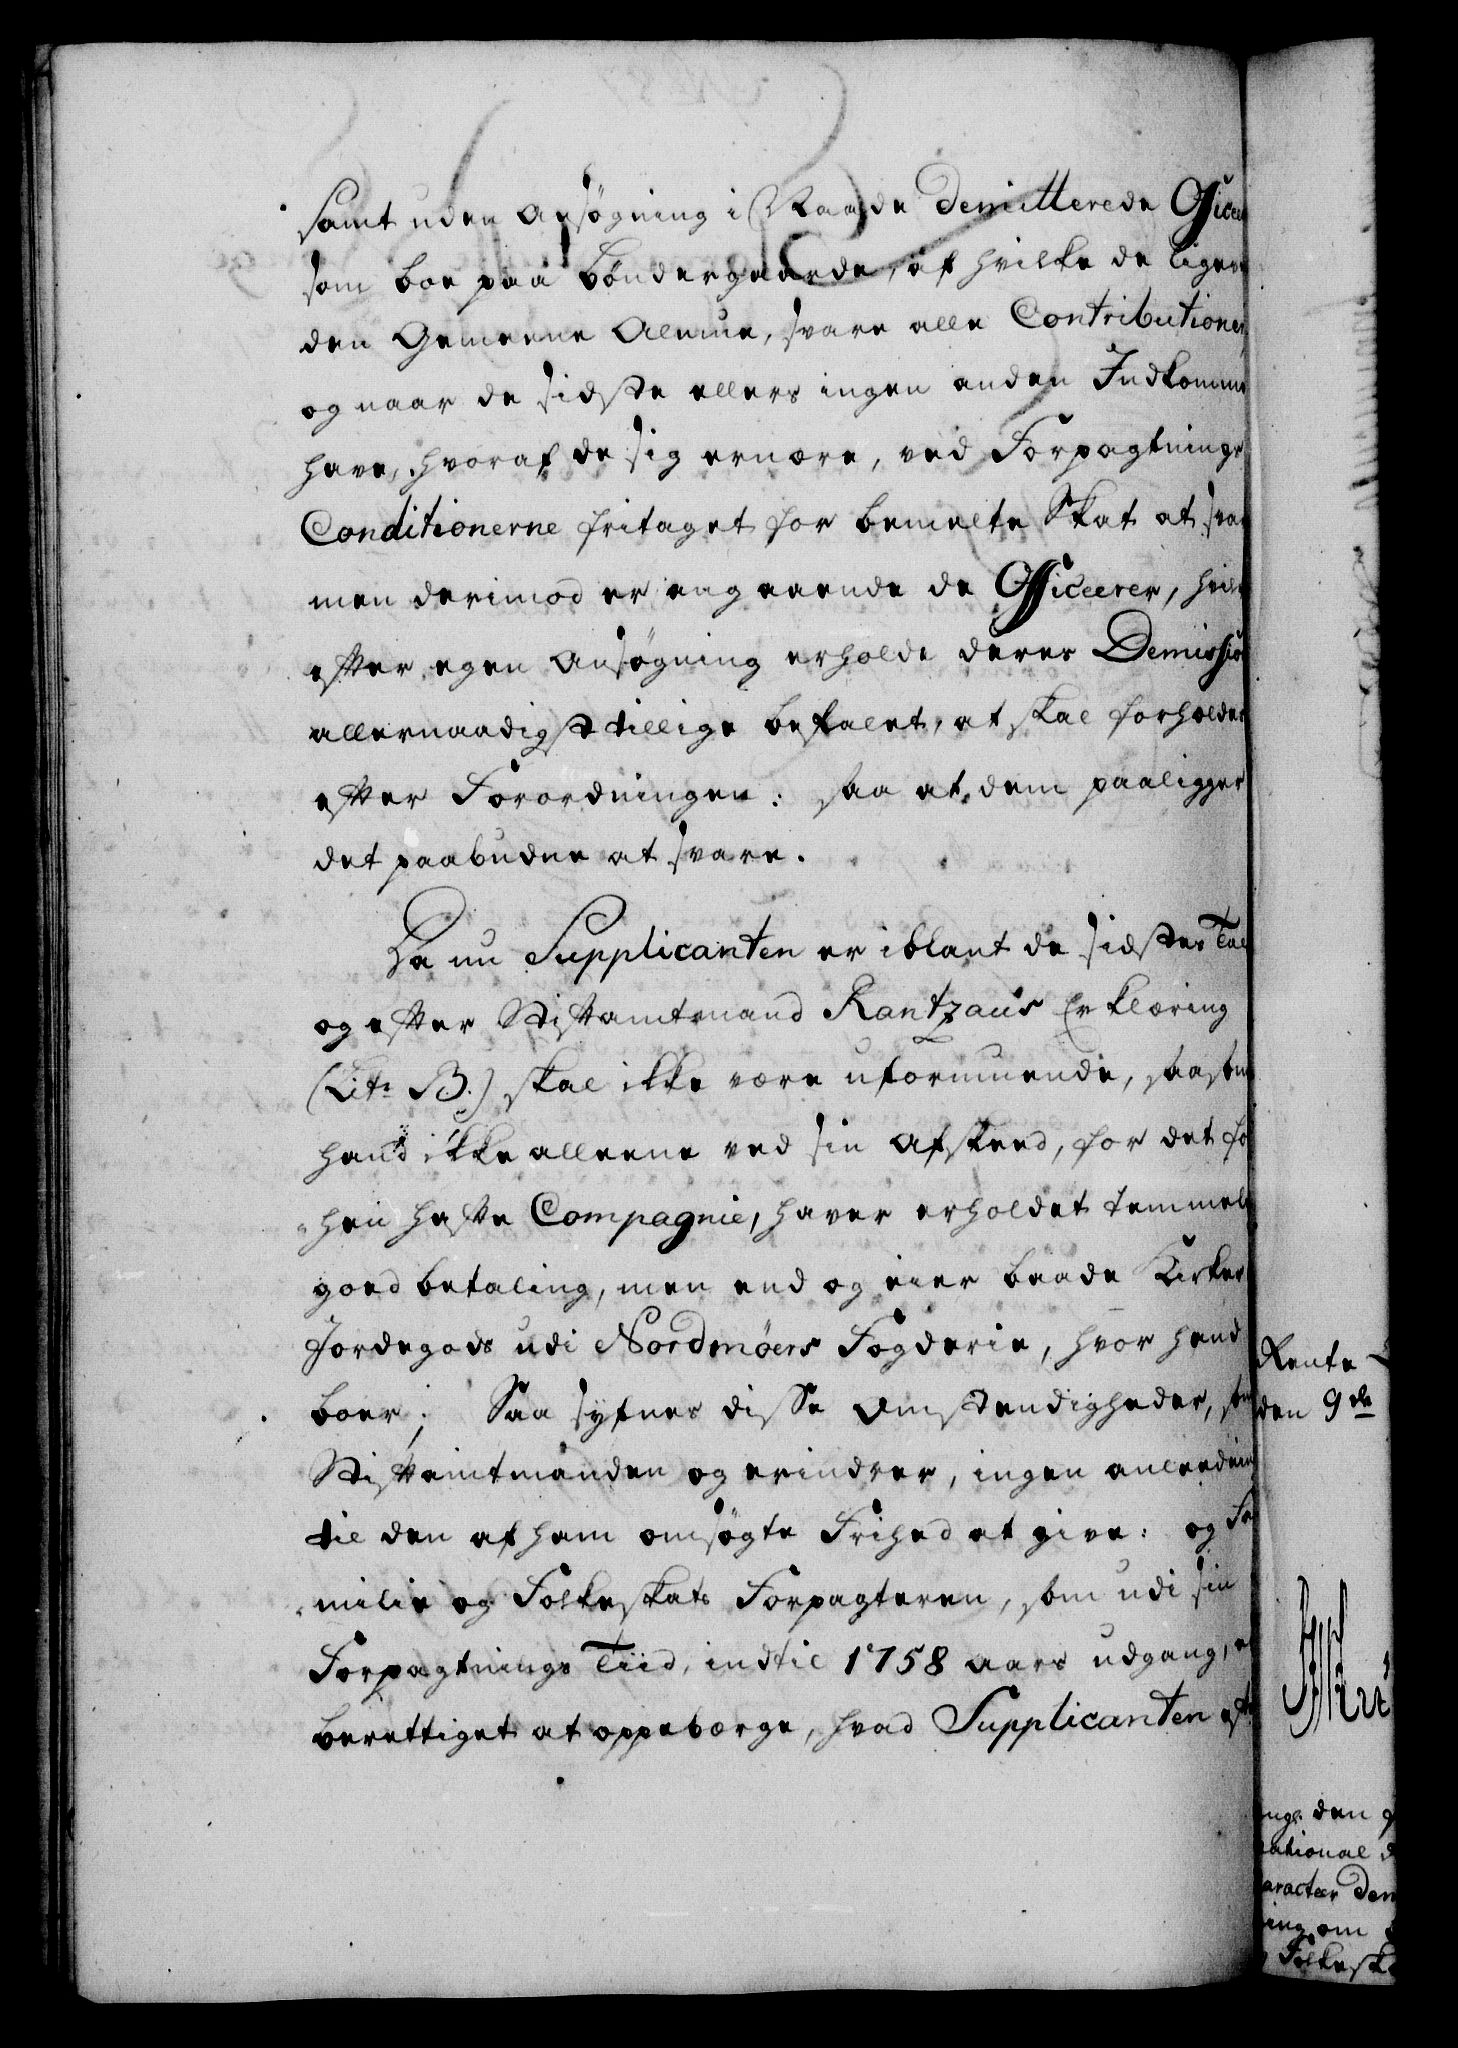 samt uden Ansøgning i Naade Demitterede Officee
som boe paa Bøndergaarde, af hvilke de ligere
den Gemeene Almue, svare alle Contributioner,
og naar de sidste ellers ingen anden Indkomme
have, hvoraf de sig ernære, ved Forpagtnings
Conditionerne fritaget for bemelte Skat at svar
men derimod er angaaende de Officeerer, hvil
efter egen Ansøgning erholde deres Demission
allernaadigst tillige befalet, at skal forholdes
efter Forordningen: saa at dem paaligger
det paabudne at svare.
Da nu Supplicanten er iblant de sidstes Tal
og efter Stiftamtmand Rantzaus Erklæring
(Lit: B.) skal ikke være uformuende, saasom
hand ikke alleene ved sin Afskeed, for det fo
-hen hafte Compagnie, haver erholdet temmel
goed betaling, men end og eier baade Kirker
Jordegods udi Nordmøers Fogderie, hvor hand
boer; Saa syfnes disse Omstendigheder, som
Stiftamtmanden og erindrer, ingen anleedni
til den af ham omsøgte Frihed at give: og Fa
-milie og Folkeskats Forpagteren, som udi sin
Forpagtnings Tiid, indtil 1758 aars udgang, e
berettiget at oppebærge, hvad Supplicanten eft
Rente
den 9de
den 9
national
aracteer Dem
ing om
Folkeska